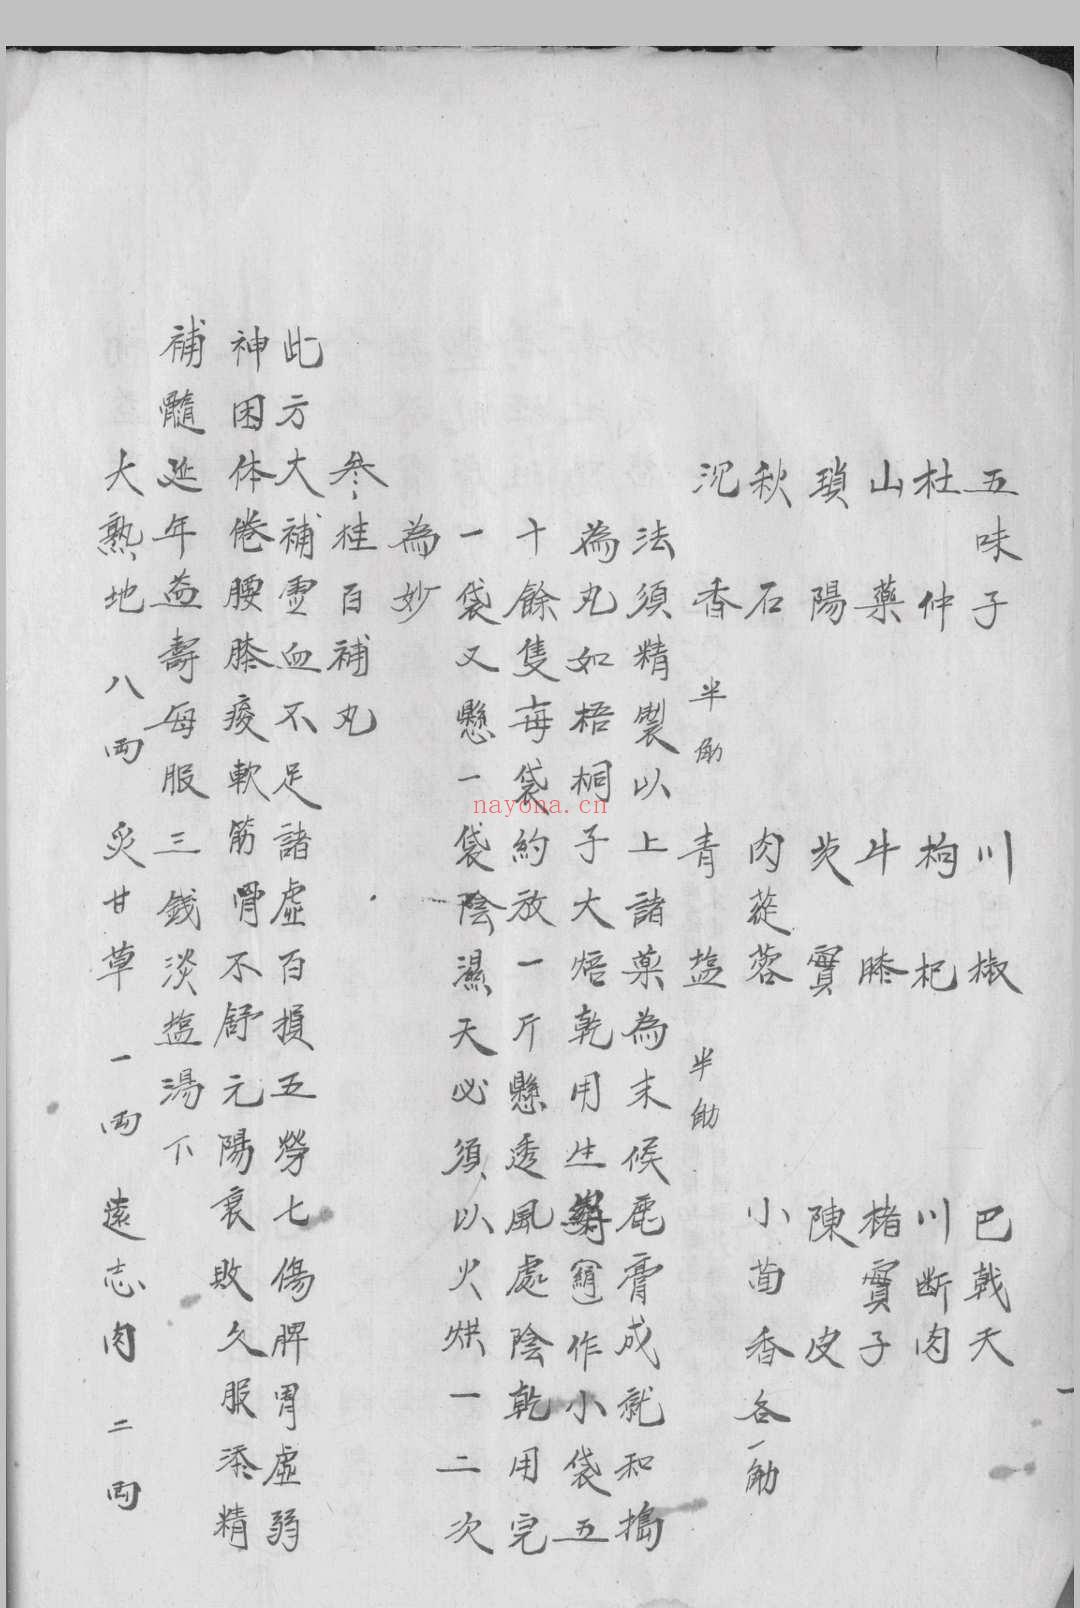 五味子 川椒 巴戟天
杜仲 枸杞 川断肉
山藥 牛膝 楮實子
瑣陽 芡實 陳皮
秋石 肉蓯蓉 小茴香各一觔
沉香半觔 青塩半觔
法須精製以上諸藥為末候鹿膏成就和搗
為丸如梧桐子大焙乾用生絹作小袋五
十餘隻每袋約放一斤懸透風處陰乾用完
一袋又懸一袋陰濕天必須以火烘一二次
為妙
參桂百補丸
此方大補雯血不足諸虛百損五勞七傷脾胃虛弱
神困体倦腰膝痠軟筋骨不舒元陽衰敗久服添精
補髓延年益壽每服三錢淡塩湯下
大熟地 八両 炙甘草 一両 遠志肉 二両
nayona.cn